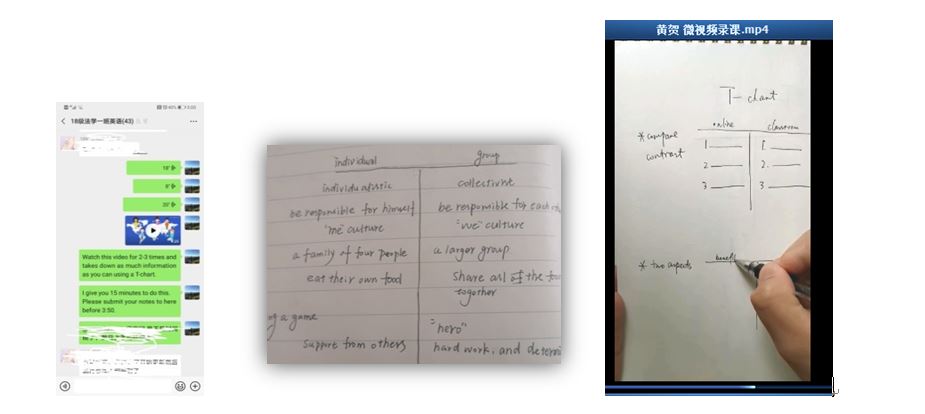 18级法学一班英语(43)
18"
9"
20"
Watch this video for 2-3 times and
takes down as much information
as you can using a T-chart.
I give you 15 minutes to do this.
Please submit your notes to here
before 3:50.
individual group
individualistic collectivist
be responsible for himself be responsible for each
"me" culture "we" culture
a family of four people a larger group
eat their own food share all of the
together
of a game
"hero"
support from others hard work, and
黄贺 微视频录课.mp4
T-chart
online classroom
*compare
contrast
1 1.
2 2.
3 3.
* two aspects